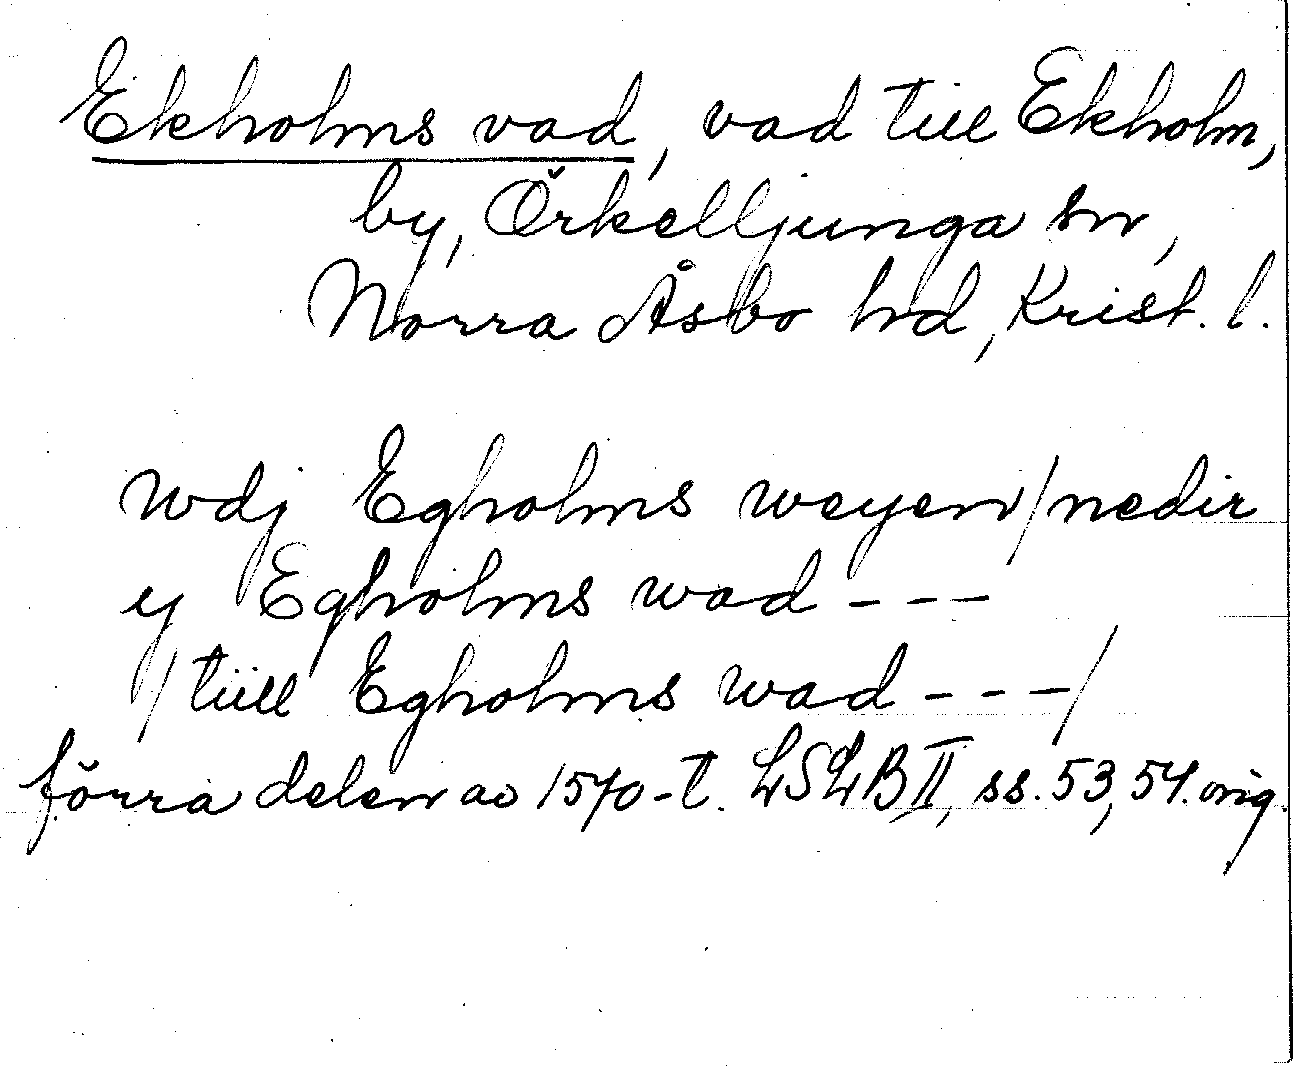 Ekholms vad, vad till Ekholm,
by, Örkelljunga sn,
Norra Åsbo hd, Krist. l.
wdj Egholms weyen/nedir
y Egholms wad ---
/tiill Egholms wad ---/
förra delen av 1570-t. LSLB II, ss. 53, 54. orig.